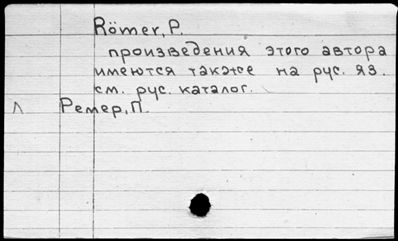 Römer, P.
произведения этого автора
имеются также на рус. яз.
см. рус. каталог.
Л Ремер, П.